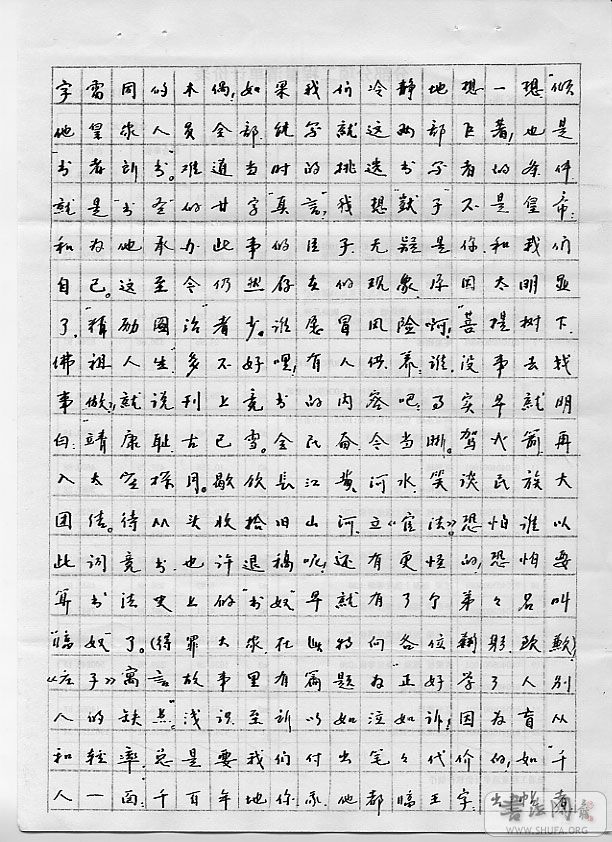 字雷同的木偶;如果我们冷静地想一想“倾
他皇家人员全部能写就这两部巨著,也是
“书者訢书”。难道当时的挑选书写者的条件
就是“书圣”的廿字“真言”,我想“獃子”不是皇帝
和为他承办此事的臣子,无疑是你和我们
自己。这至今仍然存在的现象,原因太明显
了,“精励图治”者少。谁愿冒风险啊;“菩提树下
佛祖人生”多不好哩,有人供养;谁没事去找
事做;就说刊上竞书的内容吧;事实早就明
白:靖康耻古已雪。全民奋,今当晰。驾火箭再
入太空探月。歇饮長江黄河水,笑谈民族大
团结。待从头收拾旧山河,立《宪法》。恐怕谁以
此词竞书也许退稿呢;还有更怪的,恐怕要
算书法史上的“书奴”早就有了个第々名叫
“临奴”了。(得罪大家在此特向各位鞠躬致歉)
《庄子》寓言故事里有篇题为“正好学了人别
人的缺点”。浅识至訢以如泣如诉;因为盲从
和轻率总是要我们付出笔々代价的,如“千
人一面;千百年地你、我、他都临王字
出书法网报
WWW.SHUFA.ORG